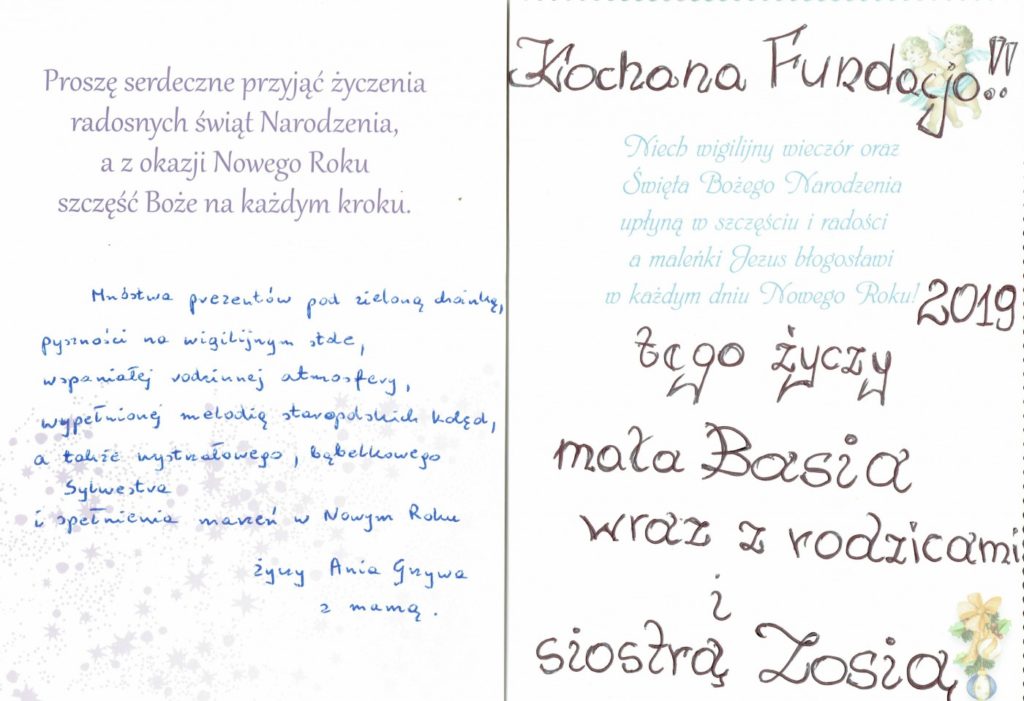 Proszę serdeczne przyjąć życzenia
radosnych świąt Narodzenia,
a z okazji Nowego Roku
szczęść Boże na każdym kroku.
Mnóstwa prezentów pod zieloną choinką,
pyszności na wigilijnym stole,
wspaniałej rodzinnej atmosfery,
wypełnionej melodią staropolskich kolęd,
a także wystrzałowego, bąbelkowego
Sylwestra
i spełnienia marzeń w Nowym Roku
życzy Ania Gzywa
z mamą.
Kochana Fundacjo!!
Niech wigilijny wieczór oraz
Święta Bożego Narodzenia
upłyną w szczęściu i radości
a maleńki Jezus błogosławi
w każdym dniu Nowego Roku!
2019
tego życzy
mała Basia
wraz z rodzicami
i
siostrą Zosią